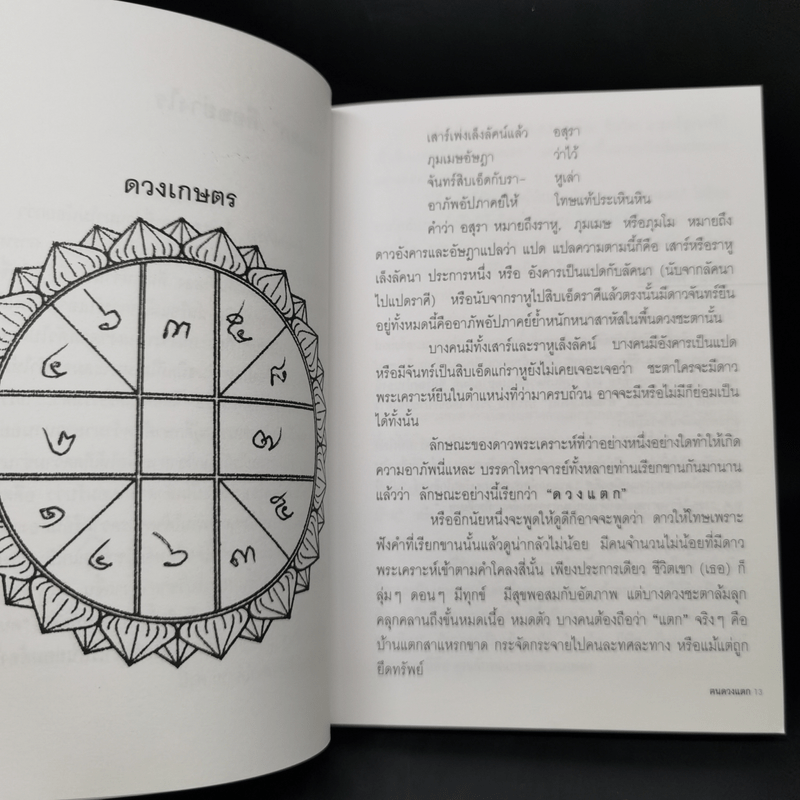 ดวงเกษตร
๖ ๓ ๕
๔ ๘
๒ ๗
๑ ๕
๔ ๖ ๓
เสาร์เพ่งเล็งลัคน์แล้ว อสุรา
ภุมเมษอัษฎา ว่าไว้
จันทร์สิบเอ็ดกับรา- หูเล่า
อาภัพอัปภาคย์ให้ โทษแท้ประเหินหิน
คำว่า อสุรา หมายถึงราหู, ภุมเมษ หรือภุมโม หมายถึง
ดาวอังคารและอัษฎาแปลว่า แปด แปลความตามนี้ก็คือ เสาร์หรือราหู
เล็งลัคนา ประการหนึ่ง หรือ อังคารเป็นแปดกับลัคนา (นับจากลัคนา
ไปแปดราศี) หรือนับจากราหูไปสิบเอ็ดราศีแล้วตรงนั้นมีดาวจันทร์ยืน
อยู่ทั้งหมดนี้คืออาภัพอัปภาคย์ย้ำหนักหนาสาหัสในพื้นดวงชะตานั้น
บางคนมีทั้งเสาร์และราหูเล็งลัคน์ บางคนมีอังคารเป็นแปด
หรือมีจันทร์เป็นสิบเอ็ดแก่ราหูยังไม่เคยเจอะเจอว่า ชะตาใครจะมีดาว
พระเคราะห์ยืนในตำแหน่งที่ว่ามาครบถ้วน อาจจะมีหรือไม่มีก็ย่อมเป็น
ได้ทั้งนั้น
ลักษณะของดาวพระเคราะห์ที่ว่าอย่างหนึ่งอย่างใดทำให้เกิด
ความอาภัพนี่แหละ บรรดาโหราจารย์ทั้งหลายท่านเรียกขานกันมานาน
แล้วว่า ลักษณะอย่างนี้เรียกว่า "ดวงแตก"
หรืออีกนัยหนึ่งจะพูดให้ดูดีก็อาจจะพูดว่า ดาวให้โทษเพราะ
ฟังคำที่เรียกขานนั้นแล้วดูน่ากลัวไม่น้อย มีคนจำนวนไม่น้อยที่มีดาว
พระเคราะห์เข้าตามคำโคลงสี่นั้น เพียงประการเดียว ชีวิตเขา (เธอ) ก็
ลุ่มๆ ดอนๆ มีทุกข์ มีสุขพอสมกับอัตภาพ แต่บางดวงชะตาล้มลุก
คลุกคลานถึงขั้นหมดเนื้อ หมดตัว บางคนต้องถือว่า "แตก" จริงๆ คือ
บ้านแตกสาแหรกขาด กระจัดกระจายไปคนละทศละทาง หรือแม้แต่ถูก
ยึดทรัพย์
คนดวงแตก 13